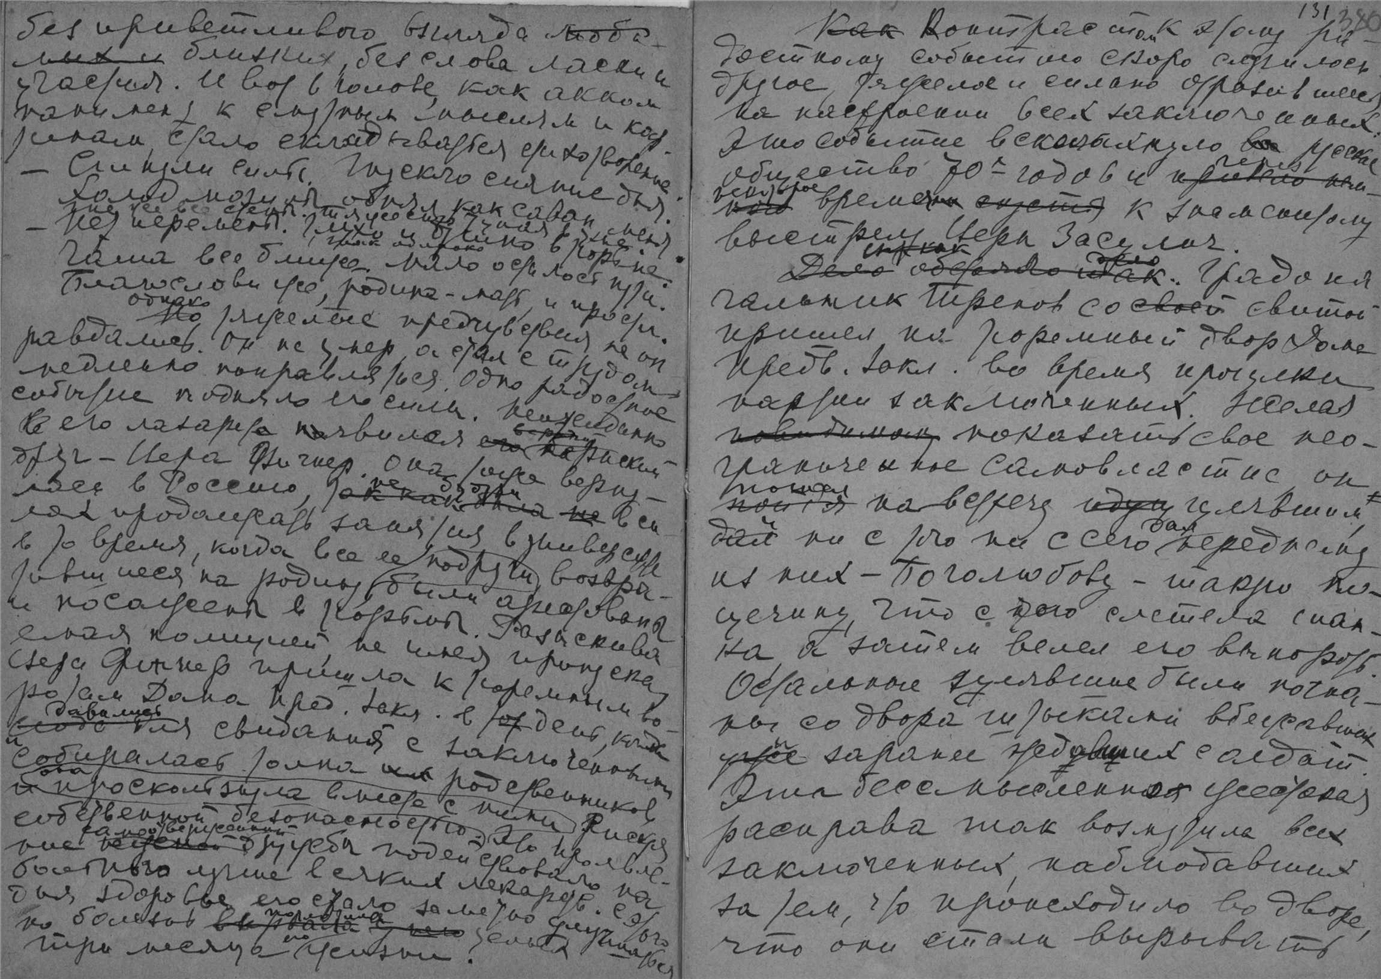 без приветливого взгляда люби-
мых и близких, без слова ласки и
участия. И вот в голове, как акком
панимент к смутным мыслям и кар
тинам, стало складываться стихотворение.
— Сгинули силы. Тускло сияние дня.
Холод могилы обнял как саван меня.
— Нет перемены. Глухо и душно в тюрьме.
Чаша все ближе, мало осталось пути.
Благослови же, родина-мать, и прости.
однако
Но тяжелые предчувствия не оп
равдались. Он не умер, а стал с трудом
медленно поправляться. Одно радостное
событие подняло его силы. Неожиданно
в его лазарете появился его верный
друг — Вера Фигнер. Она тогда верну-
лась в Россию,
лах продолжать занятия в университете
в то время, когда все ее подруги, возвра-
тившиеся на родину, были арестованы
и посажены в тюрьмы. Разыскива
емая полицией, не имея пропуска,
Вера Фигнер пришла к тюремным во
ротам Дома пред. закл. в тот день, когда
давались
для свидания с заключенными
собиралась толпа их родственников
и она проскользнула вместе с ними, рискуя
собственной безопасностью. Это проявле-
самоотверженной
ние дружбы подействовало на
больного лучше всяких лекарств. С этого
дня здоровье его стало заметно улучшаться
но болезнь целых
три месяца жизни.
131 380
Как Контрастом к этому ра-
достному событию скоро случилось
другое, тяжело и сильно отразившееся
на настроении всех заключенных.
Это событие всколыхнуло все русское
общество 70-х годов и привело через
некоторое время спустя к знаменитому
выстрелу Веры Засулич.
Дело обстояло так. Градона
чальник Трепов со своей свитой
пришел на тюремный двор Дома
предв. закл. во время прогулки
партии заключенных. Желая
повидимому показать свое нео-
граниченное самовластие, он
пошел
на встречу идущ гулявшим,
дал
дал ни с того ни с сего переднему
из них — Боголюбову — такую по-
щечину, что с него слетела шап-
ка, а затем велел его выпороть.
Остальные гулявшие были прогна-
ны со двора штыками вбежавших
уже заранее солдат.
Эта бессмысленная жестокая
расправа так возмутила всех
заключенных, наблюдавших
за тем, что происходило во дворе,
что они стали вырывать